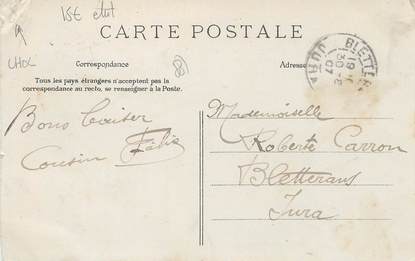 1St état
CHOC
CARTE POSTALE
Correspondance
Adresse
Tous les pays étrangers n'acceptent pas la
correspondance au recto, se renseigner à la Poste.
Bons baiser
Cousin
Mademoiselle
Roberte Carron
Bletterans
Jura
BLETTER
JURA